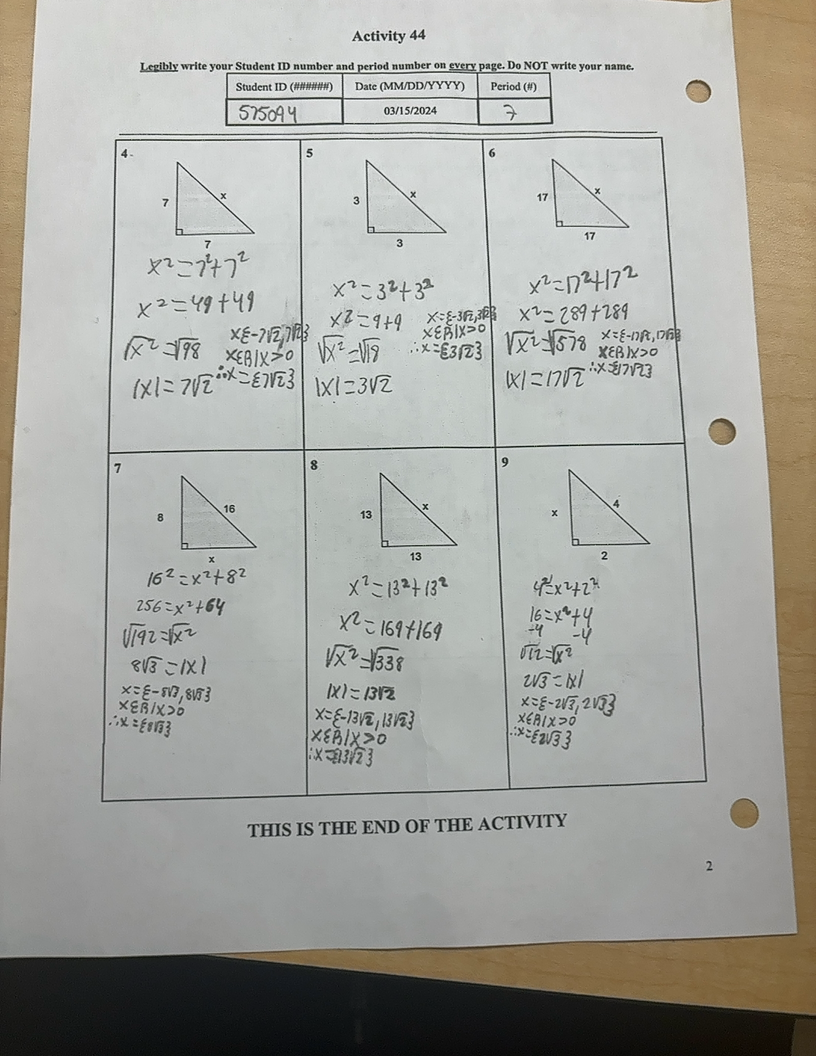 Activity 44
Legibly write your Student ID number and period number on every page. Do NOT write your name.
Student ID (######) Date (MM/DD/YYYY) Period (#)
575094 03/15/2024 7
4
7
x
7
x²=7²+7²
x²=49+49
√x²=√98
|x|=7√2
x{-7√2,7√2}
x∈ℝ|x>0
∴x={7√2}
5
3
x
3
x²=3²+3²
x²=9+9
√x²=√19
|x|=3√2
x={-3√2,3√2}
x∈ℝ|x>0
∴x={3√2}
6
17
x
17
x²=17²+17²
x²=289+289
√x²=√578
|x|=17√2
x={-17√2,17√2}
x∈ℝ|x>0
∴x={17√2}
7
8
16
x
16²=x²+8²
256=x²+64
√192=√x²
8√3=|x|
x={-8√3,8√3}
x∈ℝ|x>0
∴x={8√3}
8
13
x
13
x²=13²+13²
x²=169+169
√x²=√338
|x|=13√2
x={-13√2,13√2}
x∈ℝ|x>0
∴x={13√2}
9
x
4
2
4²=x²+2²
16=x²+4
-4 -4
√12=√x²
2√3=|x|
x={-2√3,2√3}
x∈ℝ|x>0
∴x={2√3}
THIS IS THE END OF THE ACTIVITY
2